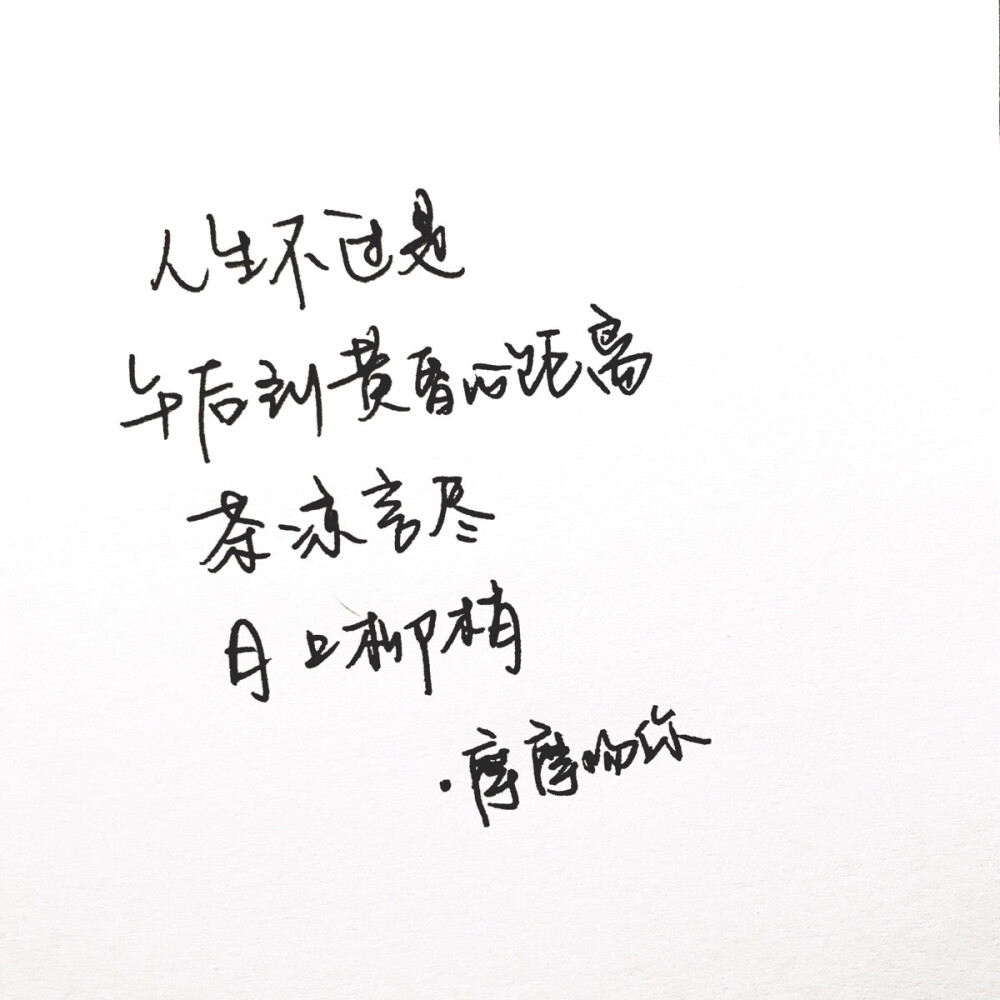 人生不过是
午后到黄昏的距离
茶凉言尽
月上柳梢
·摩摩吻你